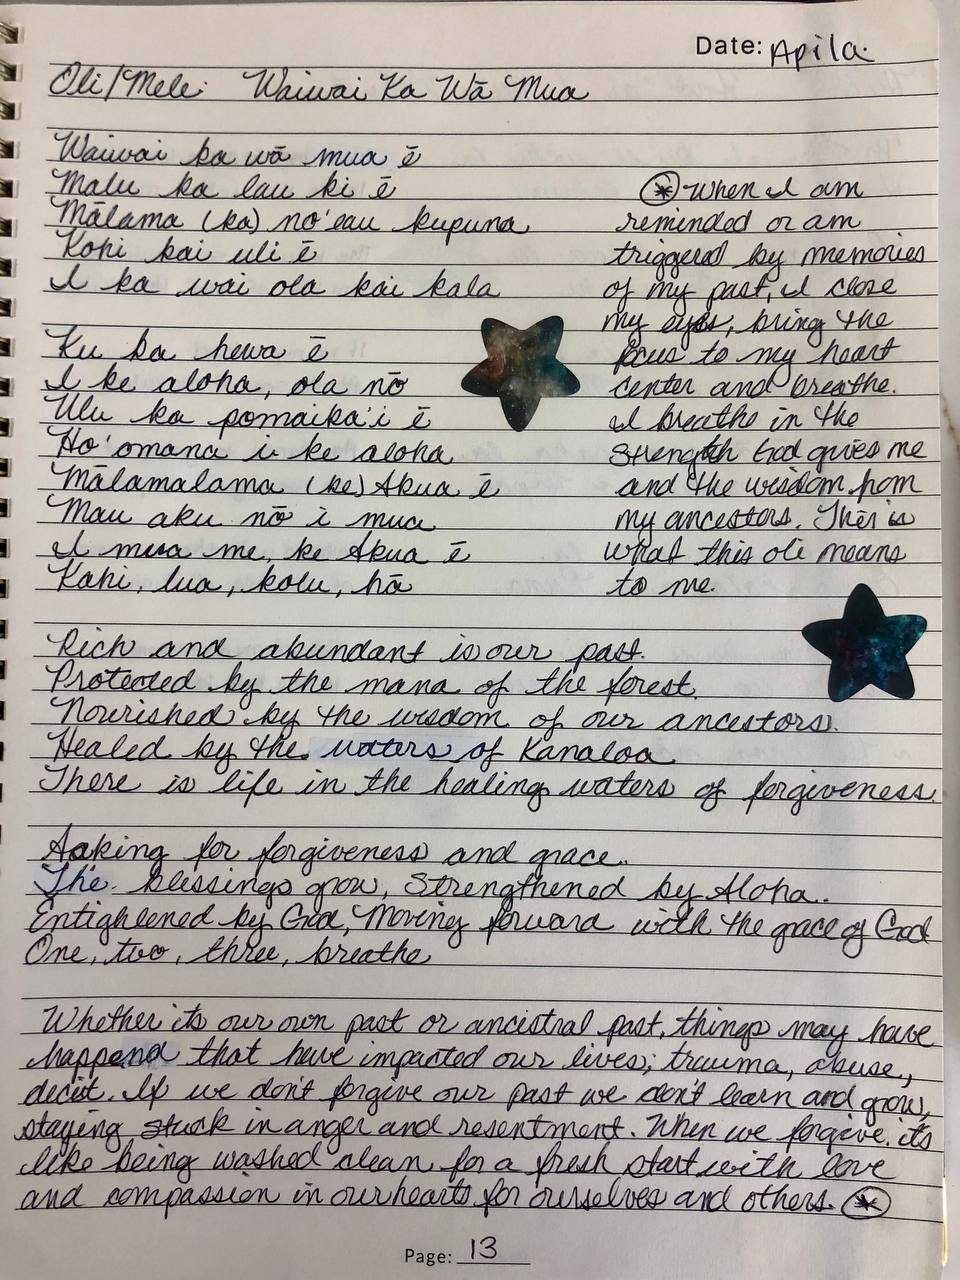 Date: Apila
Oli/Mele: Waiwai Ka Wā Mua
Waiwai ka wā mua ē
Malu ka lau ki ē
Mālama (ka) no'eau kupuna
Kohi kai uli ē
I ka wai ola kai kala
Ku ka hewa ē
I ke aloha, ola nō
Ulu ka pomaika'i ē
Ho'omana i ke aloha
Mālamalama (ke) Akua ē
Mau aku nō i mua
I mua me, ke Akua ē
Kahi, lua, kolu, hā
* When I am
reminded or am
triggered by memories
of my past, I close
my eyes, bring the
focus to my heart
center and breathe.
I breathe in the
strength God gives me
and the wisdom from
my ancestors. This is
what this oli means
to me.
Rich and abundant is our past.
Protected by the mana of the forest.
Nourished by the wisdom of our ancestors.
Healed by the waters of Kanaloa
There is life in the healing waters of forgiveness.
Asking for forgiveness and grace.
The blessings grow, Strengthened by Aloha.
Entightened by God, Moving forward with the grace of God
One, two, three, breathe
Whether its our own past or ancistral past, things may have
happend that have impacted our lives; trauma, abuse,
decit. If we don't forgive our past we don't learn and grow,
staying stuck in anger and resentment. When we forgive, its
like being washed clean for a fresh start with love
and compassion in our hearts for ourselves and others. *
Page: 13